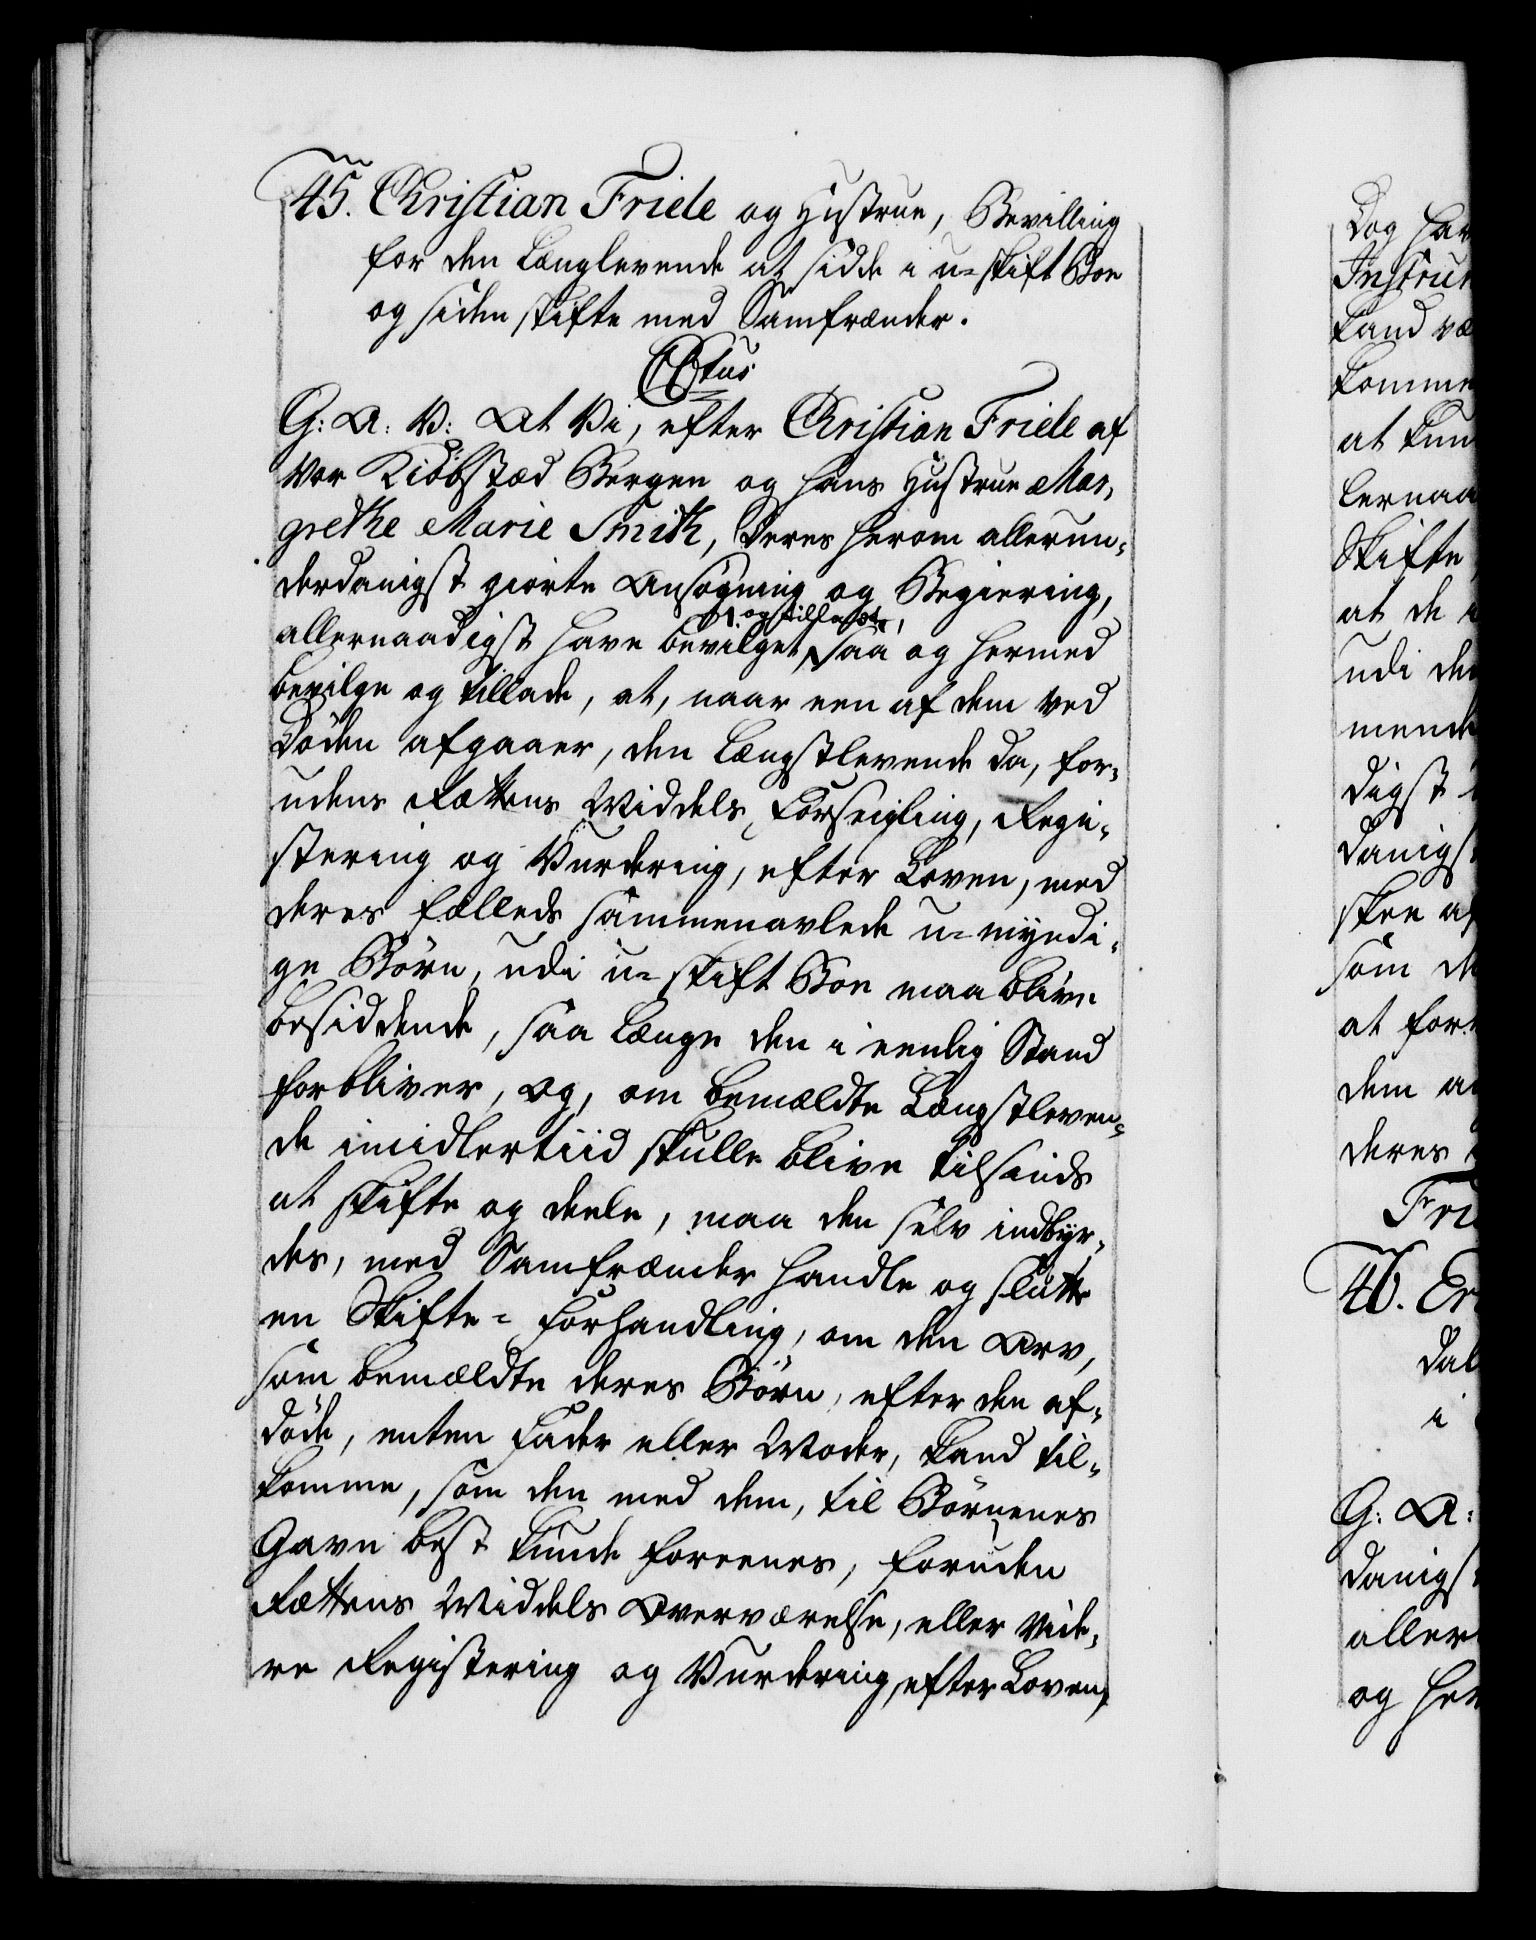 45. Christian Friele og Hustrue, Bevilling
for den Længlevende at sidde i u-skift Boe
og siden skifte med Samfrænder.
C6tus
G: A: V: At Vi, efter Christian Friele af
Vor Kiöbstæd Bergen og hans Hustrue Mar,
grethe Marie Smith, Deres herom allerun,
derdanigst giorte Ansögning og Begiering,
og tilladt,
allernaadigst have bevilget, saa og hermed
bevilge og tillade, at, naar een af dem ved
Döden afgaaer, den Længstlevende da, for,
udens Rættens Middels Forseigling, Regi,
stering og Vurdering, efter Loven, med
deres fælleds sammenavlede u-myndi,
ge Börn, udi u-skift Boe maa blive
besiddende, saa længe den i eenlig Stand
forbliver, Og, om bemældte Længstleven,
de imidlertiid skulle blive tilsinds
at skifte og deele, maa den selv indbyr,
des, med Samfrænder handle og slutte
en Skifte-Forhandling, om den Arv,
som bemældte deres Börn, efter den af,
döde, enten Fader eller Moder, kand til,
komme, som den med dem, til Börnenes
Gavn best kunde foreenes, foruden
Rættens Middels Overværelse, eller vide,
re Registering og Vurdering, efter Loven,
Dog hav
Instru
kand væ
komme
at kun
lernaa
Skifte
at de
udi de
mend
digst
danigs
skee af
som de
at for
dem a
deres
Fri
46. Er
dal
i
G: A:
danigs
aller
og her